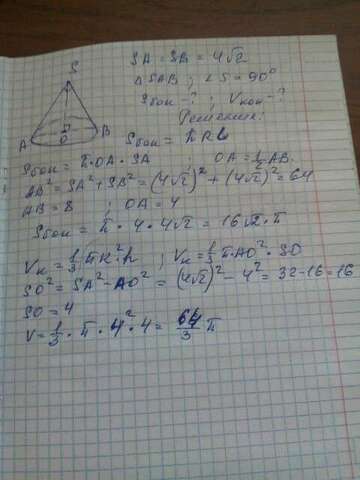 S
SA = SB = 4√2
△SAB ; ∠S = 90°
Sбок - ? ; Vкон - ?
Решение:
A O B
Sбок = πRL
Sбок = π·OA·SA ; OA = 1/2 AB.
AB² = SA² + SB² = (4√2)² + (4√2)² = 64
AB = 8 ; OA = 4
Sбок = π · 4 · 4√2 = 16√2 · π
Vк = 1/3 πR²h ; Vк = 1/3 π·AO² · SO
SO² = SA² - AO² = (4√2)² - 4² = 32 - 16 = 16
SO = 4
V = 1/3 · π · 4² · 4 = 64/3 π